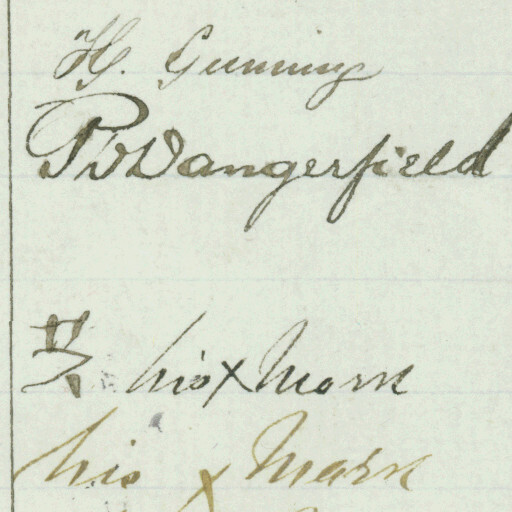 H. Gunning
P W Dangerfield
his x Mark
his x Mark